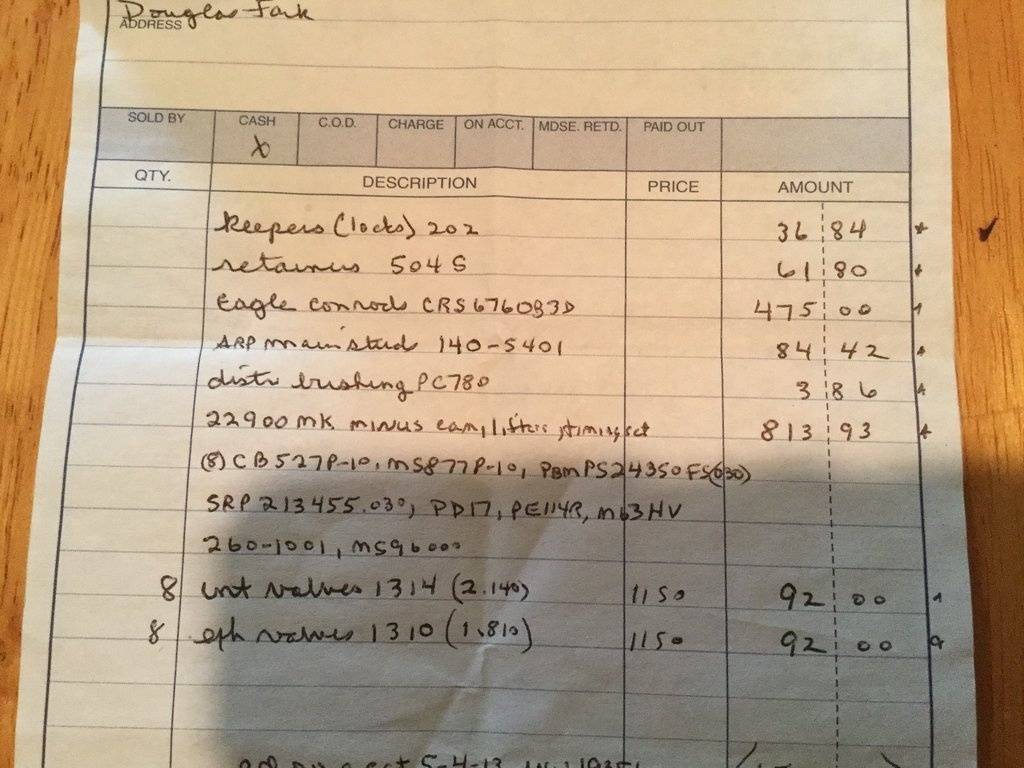 Douglas Fork
ADDRESS
SOLD BY CASH C.O.D. CHARGE ON ACCT. MDSE. RETD. PAID OUT
X
QTY. DESCRIPTION PRICE AMOUNT
keepers (locks) 202 36 84
retainers 504 S 61 80
Eagle conrods CRS6760B3D 475 00
ARP main stud 140-5401 84 42
distr bushing PC780 3 86
22900 MK minus cam, lifters, timing set 813 93
(8) CB527P-10, MS877P-10, PBMPS24350FS(030)
SRP 213455.030, PD17, PE114R, M63HV
260-1001, MS96000
8 int valves 1314 (2.140) 1150 92 00
8 exh valves 1310 (1.810) 1150 92 00
5-4-13